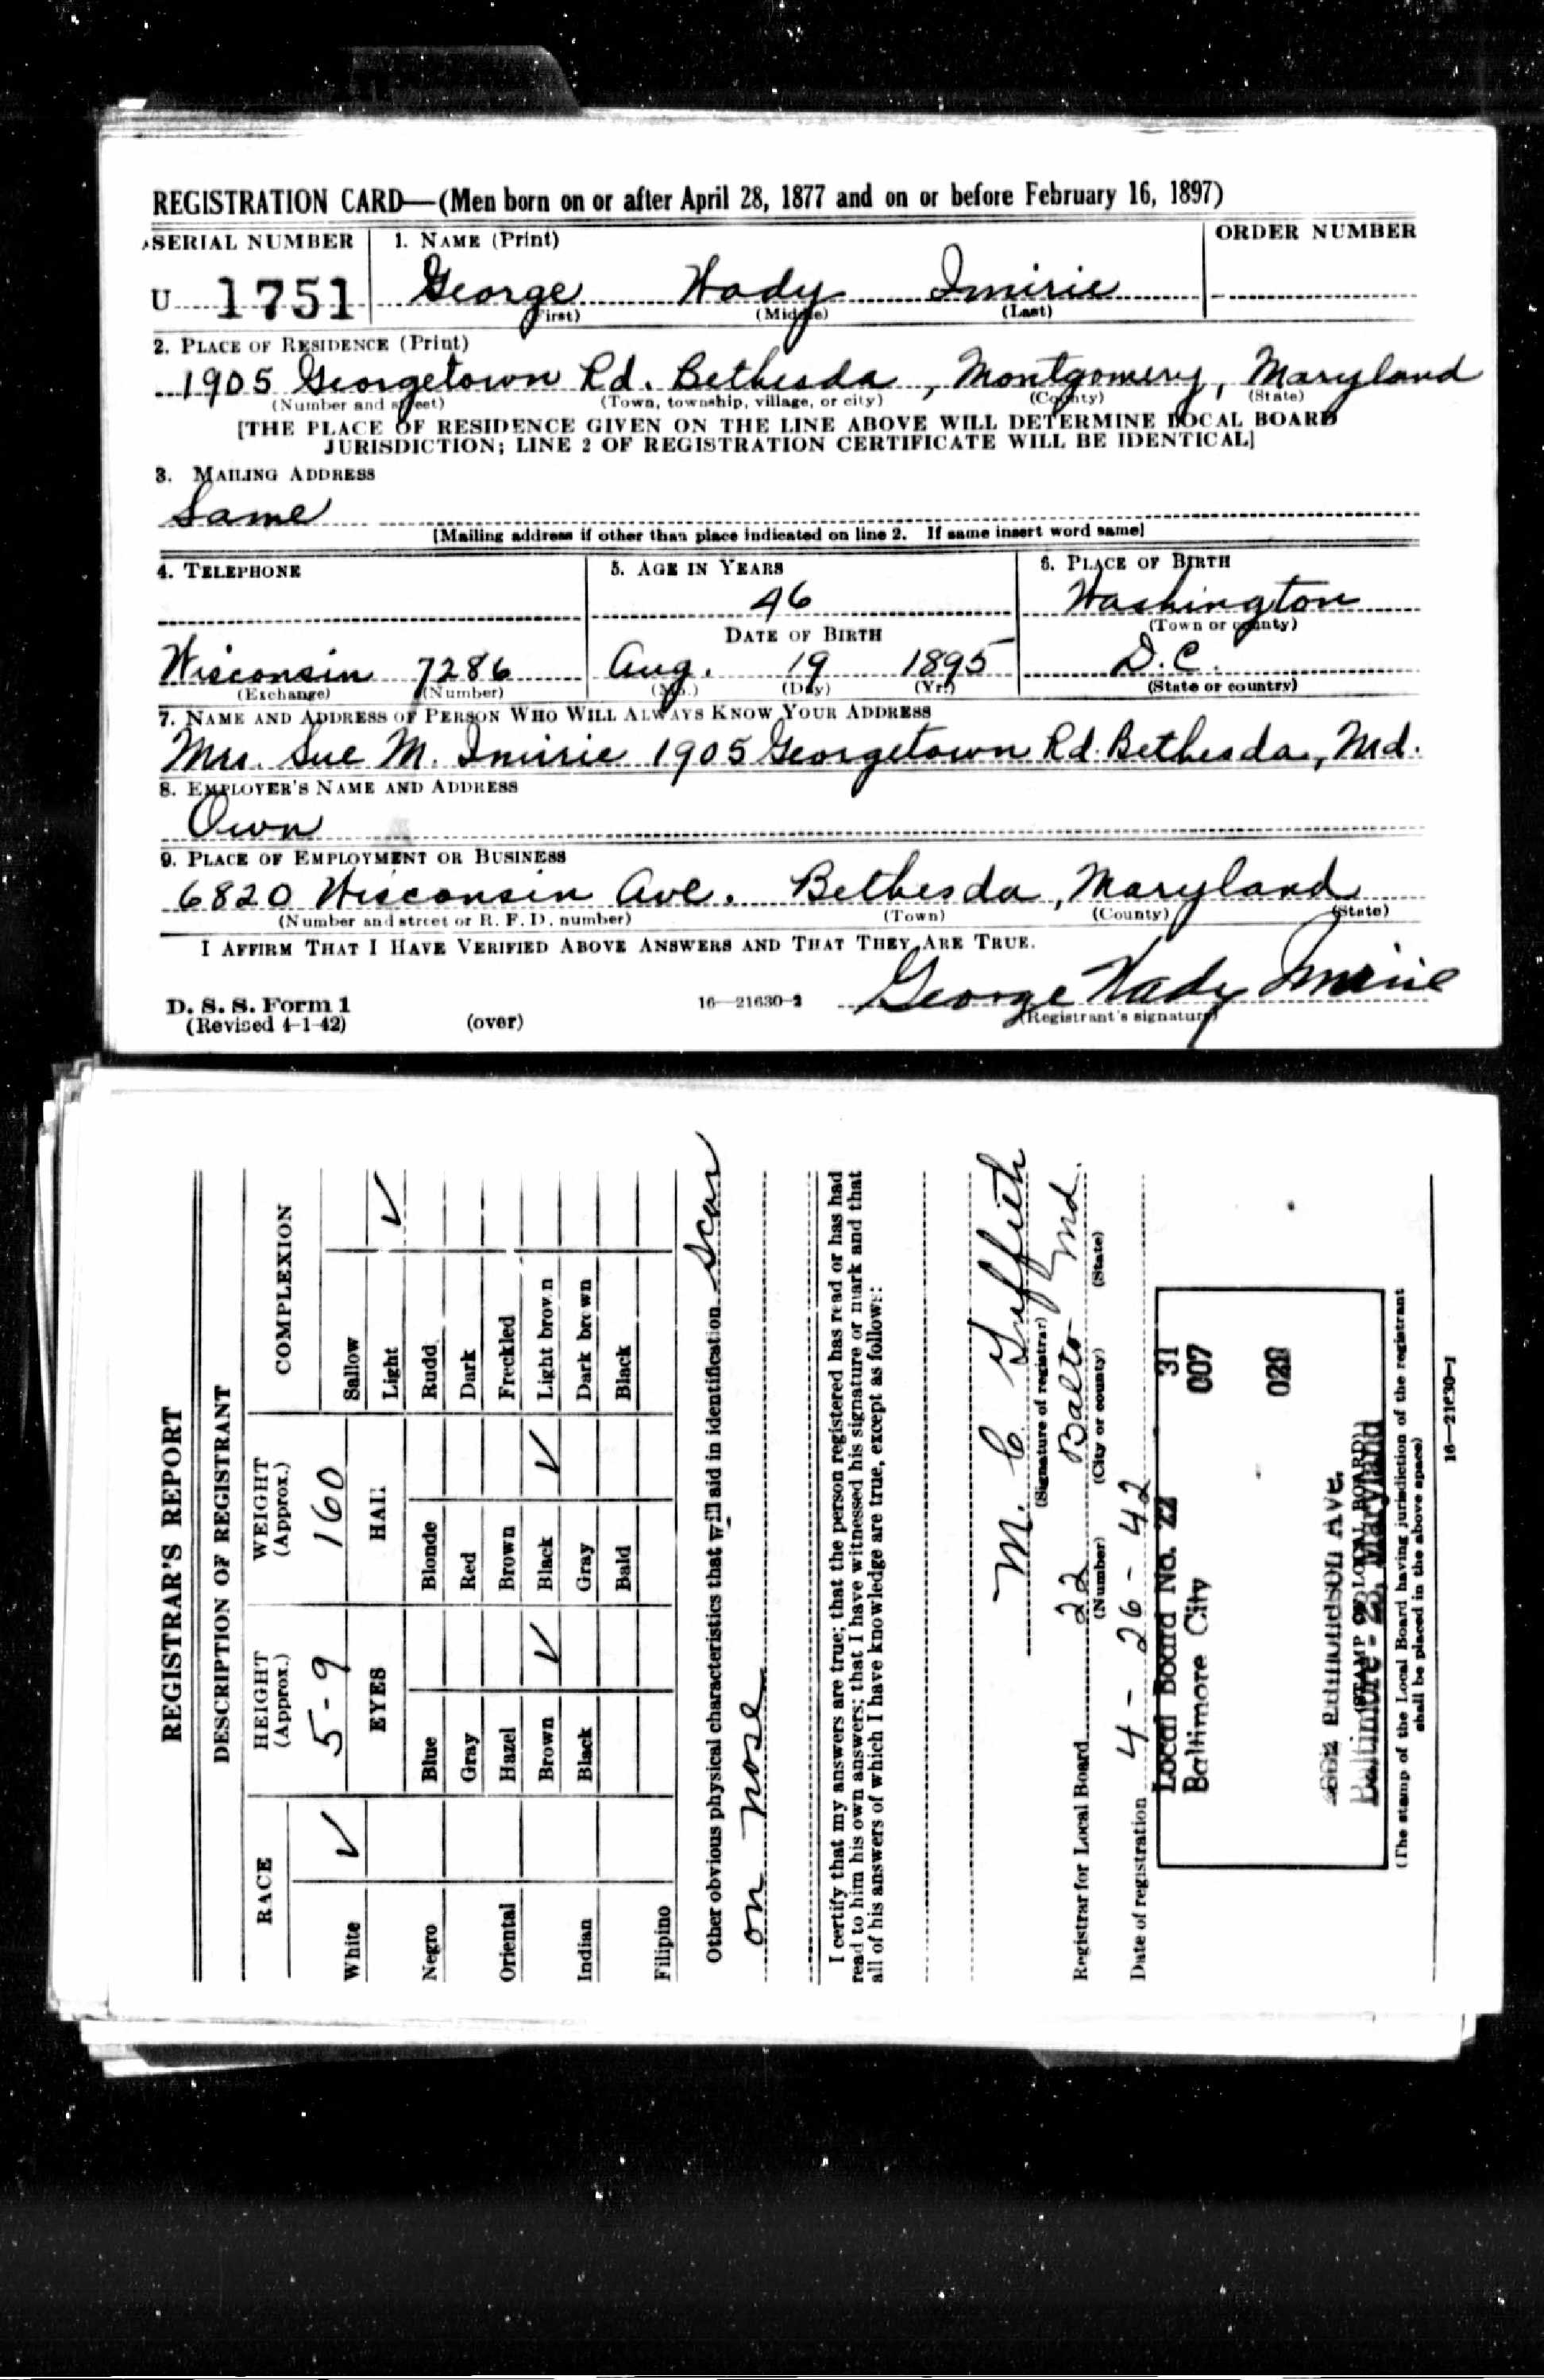 REGISTRATION CARD—(Men born on or after April 28, 1877 and on or before February 16, 1897)
SERIAL NUMBER 1. NAME (Print) ORDER NUMBER
U 1751 George Wady Imirie
(First) (Middle) (Last)
2. PLACE OF RESIDENCE (Print)
1905 Georgetown Rd. Bethesda, Montgomery, Maryland
(Number and street) (Town, township, village, or city) (County) (State)
[THE PLACE OF RESIDENCE GIVEN ON THE LINE ABOVE WILL DETERMINE LOCAL BOARD
JURISDICTION; LINE 2 OF REGISTRATION CERTIFICATE WILL BE IDENTICAL]
3. MAILING ADDRESS
Same
[Mailing address if other than place indicated on line 2. If same insert word same]
4. TELEPHONE 5. AGE IN YEARS 6. PLACE OF BIRTH
46 Washington
DATE OF BIRTH (Town or county)
Wisconsin 7286 Aug. 19 1895 D.C.
(Exchange) (Number) (Mo.) (Day) (Yr.) (State or country)
7. NAME AND ADDRESS OF PERSON WHO WILL ALWAYS KNOW YOUR ADDRESS
Mrs. Sue M. Imirie 1905 Georgetown Rd. Bethesda, Md.
8. EMPLOYER'S NAME AND ADDRESS
Own
9. PLACE OF EMPLOYMENT OR BUSINESS
6820 Wisconsin Ave. Bethesda, Maryland
(Number and street or R. F. D. number) (Town) (County) (State)
I AFFIRM THAT I HAVE VERIFIED ABOVE ANSWERS AND THAT THEY ARE TRUE.
George Wady Imirie
D. S. S. Form 1 16—21630-2 (Registrant's signature)
(Revised 4-1-42) (over)
REGISTRAR'S REPORT
DESCRIPTION OF REGISTRANT
RACE HEIGHT (Approx.) WEIGHT (Approx.) COMPLEXION
White ✓ 5-9 160 Sallow
EYES HAIR Light ✓
Negro Blue Blonde Ruddy
Gray Red Dark
Oriental Hazel Brown Freckled
Brown ✓ Black ✓ Light brown
Indian Black Gray Dark brown
Bald Black
Filipino
Other obvious physical characteristics that will aid in identification scar
on nose
I certify that my answers are true; that the person registered has read or has had
read to him his own answers; that I have witnessed his signature or mark and that
all of his answers of which I have knowledge are true, except as follows:
M. C. Griffith
(Signature of registrar)
Registrar for Local Board 22 Balto Md.
(Number) (City or county) (State)
Date of registration 4-26-42
Local Board No. 22 31
Baltimore City 007
029
Edmondson Ave.
(STAMP OF LOCAL BOARD)
Baltimore - 23, Maryland
(The stamp of the Local Board having jurisdiction of the registrant
shall be placed in the above space)
16—21630-1